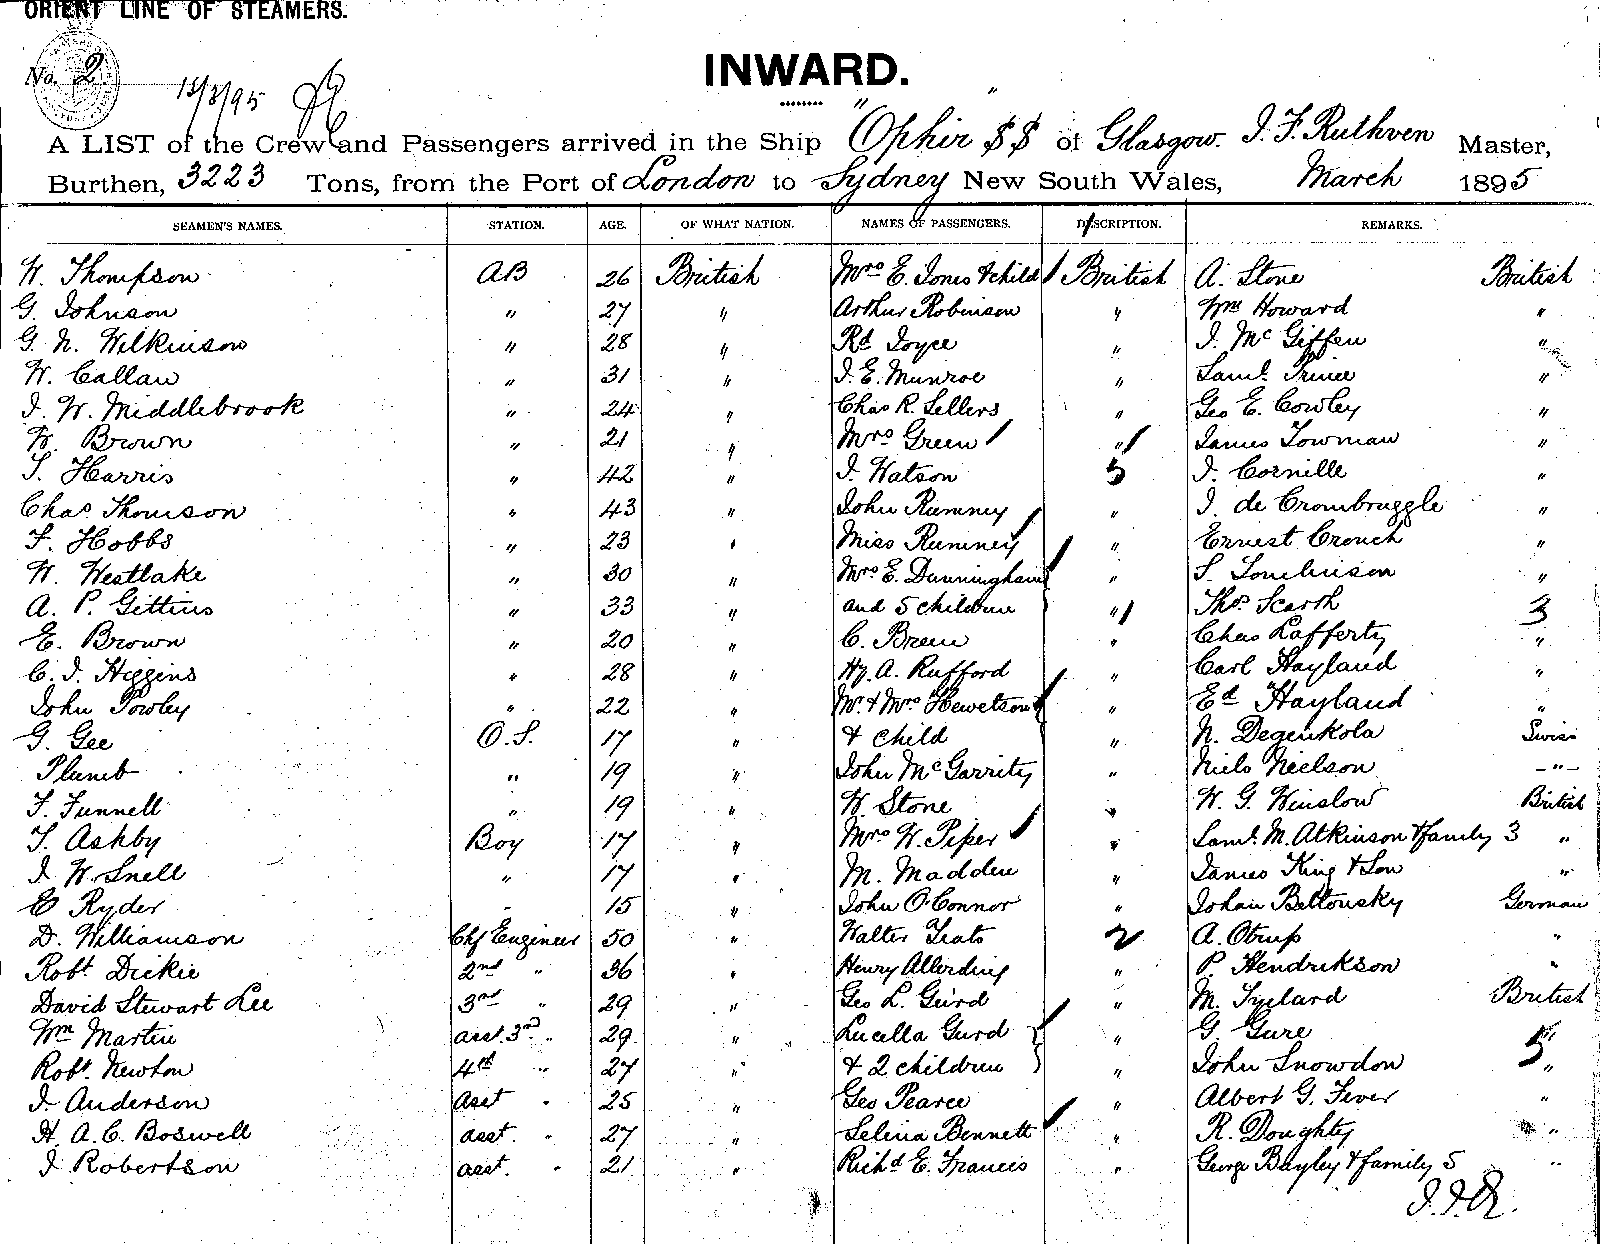 ORIENT LINE OF STEAMERS.
No. 2
INWARD.
A LIST of the Crew and Passengers arrived in the Ship "Ophir SS" of Glasgow. J. F. Ruthven Master,
Burthen, 3223 Tons, from the Port of London to Sydney New South Wales, March 1895
SEAMEN'S NAMES. STATION. AGE. OF WHAT NATION. NAMES OF PASSENGERS. DESCRIPTION. REMARKS.
W. Thompson AB 26 British Mrs E. Jones & child British A. Stone British
G. Johnson " 27 " Arthur Robinson " Wm Howard "
G. N. Wilkinson " 28 " Rd Joyce " J. McGiffen "
W. Callan " 31 " J. E. Munroe " Saml. Prince "
J. W. Middlebrook " 24 " Chas R. Sellers " Geo E. Cowley "
W. Brown " 21 " Mrs Green " James Towman "
T. Harris " 42 " J. Watson 5 J. Cornille "
Chas Thomson " 43 " John Rumney " J. de Crombruggle "
F. Hobbs " 23 " Miss Rumney " Ernest Crouch "
W. Westlake " 30 " Mrs E. Dunningham " S. Tomlinson "
A. P. Gittins " 33 " and 5 children " Thos Scarth 3
E. Brown " 20 " C. Breen " Chas Lafferty "
C. J. Higgins " 28 " Hy. A. Rufford " Carl Hayland "
John Powley " 22 " Mr. & Mrs Hewetson " Ed Hayland "
G. Gee O.S. 17 " & child " N. Degenkola Swiss
Plumb " 19 " John McGarrity " Niels Nielson "
F. Funnell " 19 " W. Stone " W. G. Winslow British
T. Ashby Boy 17 " Mrs W. Piper " Saml. M. Atkinson & family 3 "
J. W. Snell " 17 " M. Madden " James King & Son "
E Ryder " 15 " John O'Connor " Johan Beltousky German
D. Williamson Chf Engineer 50 " Walter Trats 2 A. Otrup "
Robt. Dickie 2nd " 36 " Henry Allerding " P. Hendrikson "
David Stewart Lee 3rd " 29 " Geo L. Guird " M. British
Wm Martin asst. 3rd " 29 " Lucella Gurd " G. Gure "
Robt. Newton 4th " 27 " & 2 children " John Snowdon 5 "
J. Anderson asst " 25 " Geo Pearce " Albert G. Fever "
H. A. C. Boswell asst. " 27 " Selina Bennett " R. Doughty "
J Robertson asst. " 21 " Richd E. Francis " George Bayley & family 5 "
J.F.R.